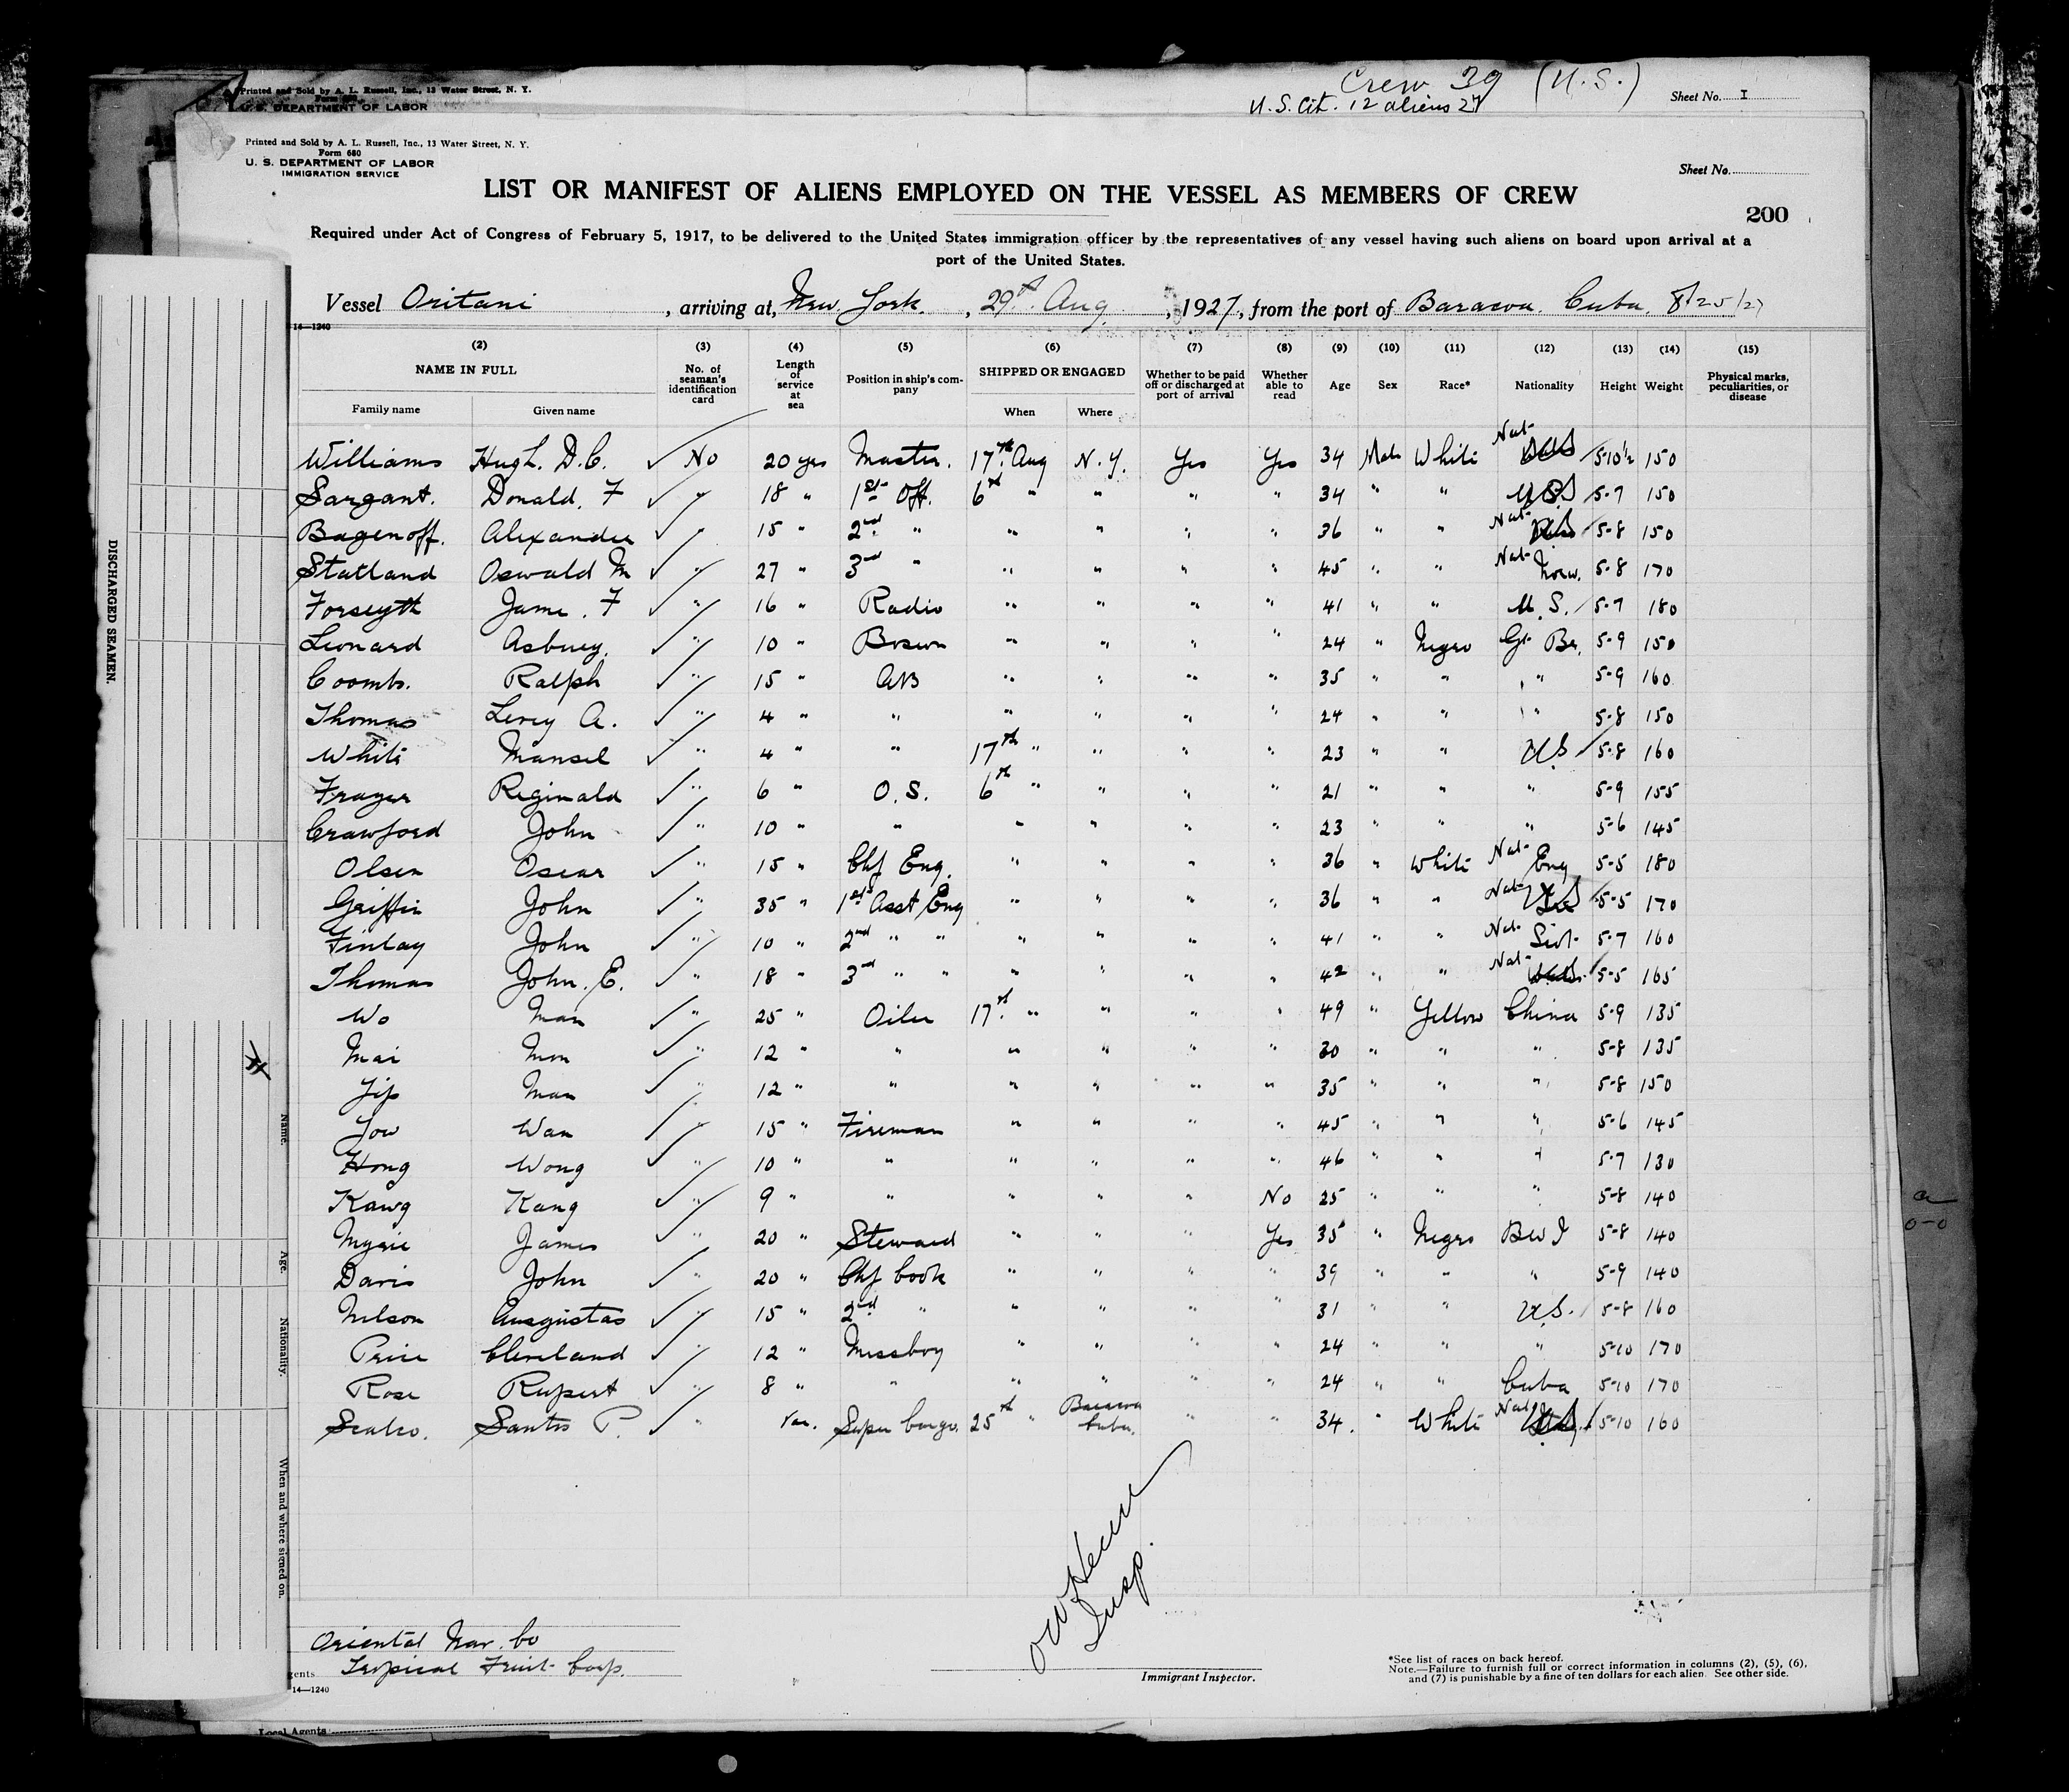 Crew 39 (U.S.)
U.S. Cit. 12 aliens 27
Sheet No. I
Printed and Sold by A. L. Russell, Inc., 13 Water Street, N. Y.
U. S. DEPARTMENT OF LABOR
Printed and Sold by A. L. Russell, Inc., 13 Water Street, N. Y.
Form 680
U. S. DEPARTMENT OF LABOR
IMMIGRATION SERVICE
Sheet No.
LIST OR MANIFEST OF ALIENS EMPLOYED ON THE VESSEL AS MEMBERS OF CREW
200
Required under Act of Congress of February 5, 1917, to be delivered to the United States immigration officer by the representatives of any vessel having such aliens on board upon arrival at a
port of the United States.
Vessel Oritani, arriving at, New York, 29th Aug, 1927, from the port of Baracoa. Cuba. 8/25/27
14—1240
(2) (3) (4) (5) (6) (7) (8) (9) (10) (11) (12) (13) (14) (15)
NAME IN FULL No. of seaman's identification card Length of service at sea Position in ship's company SHIPPED OR ENGAGED Whether to be paid off or discharged at port of arrival Whether able to read Age Sex Race* Nationality Height Weight Physical marks, peculiarities, or disease
Family name Given name When Where
Williams Hugh. D.C. ✓ No 20 yrs Master. 17th Aug N.Y. Yes Yes 34 Male White Nat- 5-10½ 150
Sargant. Donald. F ✓ " 18 " 1st Off. 6th " " " " 34 " " U.S 5-7 150
Bagenoff. Alexander ✓ " 15 " 2nd " " " " " 36 " " Nat- 5-8 150
Statland Oswald M ✓ " 27 " 3rd " " " " " 45 " " Nat- Norw. 5-8 170
Forsyth Jame. F ✓ " 16 " Radio " " " " 41 " " U.S. 5-7 180
Leonard Asbury. ✓ " 10 " Bosun " " " " 24 " Negro Gt. Br. 5-9 150
Coombs. Ralph ✓ " 15 " AB " " " " 35 " " " 5-9 160
Thomas Leroy A. ✓ " 4 " " " " " " 24 " " " 5-8 150
White Mansel ✓ " 4 " " 17th " " " " 23 " " U.S 5-8 160
Frazer Reginald ✓ " 6 " O.S. 6th " " " " 21 " " " 5-9 155
Crawford John ✓ " 10 " " " " " " 23 " " " 5-6 145
Olsen Oscar ✓ " 15 " Chf Eng. " " " " 36 " White Nat- Eng 5-5 180
Griffin John ✓ " 35 " 1st Asst Eng " " " " 36 " " Nat- 5-5 170
Finlay John ✓ " 10 " 2nd " " " " " " 41 " " Nat- 5-7 160
Thomas John. E. ✓ " 18 " 3rd " " " " " " 42 " " Nat- 5-5 165
Wo Man ✓ " 25 " Oiler 17th " " " " 49 " Yellow China 5-9 135
Mai Mon ✓ " 12 " " " " " " 30 " " " 5-8 135
Jip Man ✓ " 12 " " " " " " 35 " " " 5-8 150
Jow Wan ✓ " 15 " Fireman " " " " 45 " " " 5-6 145
Hong Wong ✓ " 10 " " " " " " 46 " " " 5-7 130
Kawg Kang ✓ " 9 " " " " " No 25 " " " 5-8 140
Myrie James ✓ " 20 " Steward " " " Yes 35 " Negro B W I 5-8 140
Davis John ✓ " 20 " Chf Cook " " " " 39 " " " 5-9 140
Nelson Ausgustas ✓ " 15 " 2nd " " " " " 31 " " U.S. 5-8 160
Price Cleveland ✓ " 12 " Messboy " " " " 24 " " " 5-10 170
Rose Rupert ✓ " 8 " " " " " " 24 " " Cuba 5-10 170
Santos P. ✓ " Super Cargo. 25th " Baracoa Cuba. " " 34. " White Nat 5-10 160
Insp.
Oriental Nav. Co
gents Tropical Fruit Corp.
Immigrant Inspector.
*See list of races on back hereof.
Note.—Failure to furnish full or correct information in columns (2), (5), (6),
and (7) is punishable by a fine of ten dollars for each alien. See other side.
14—1240
Local Agents
DISCHARGED SEAMEN.
Name.
Age.
Nationality.
When and where signed on.